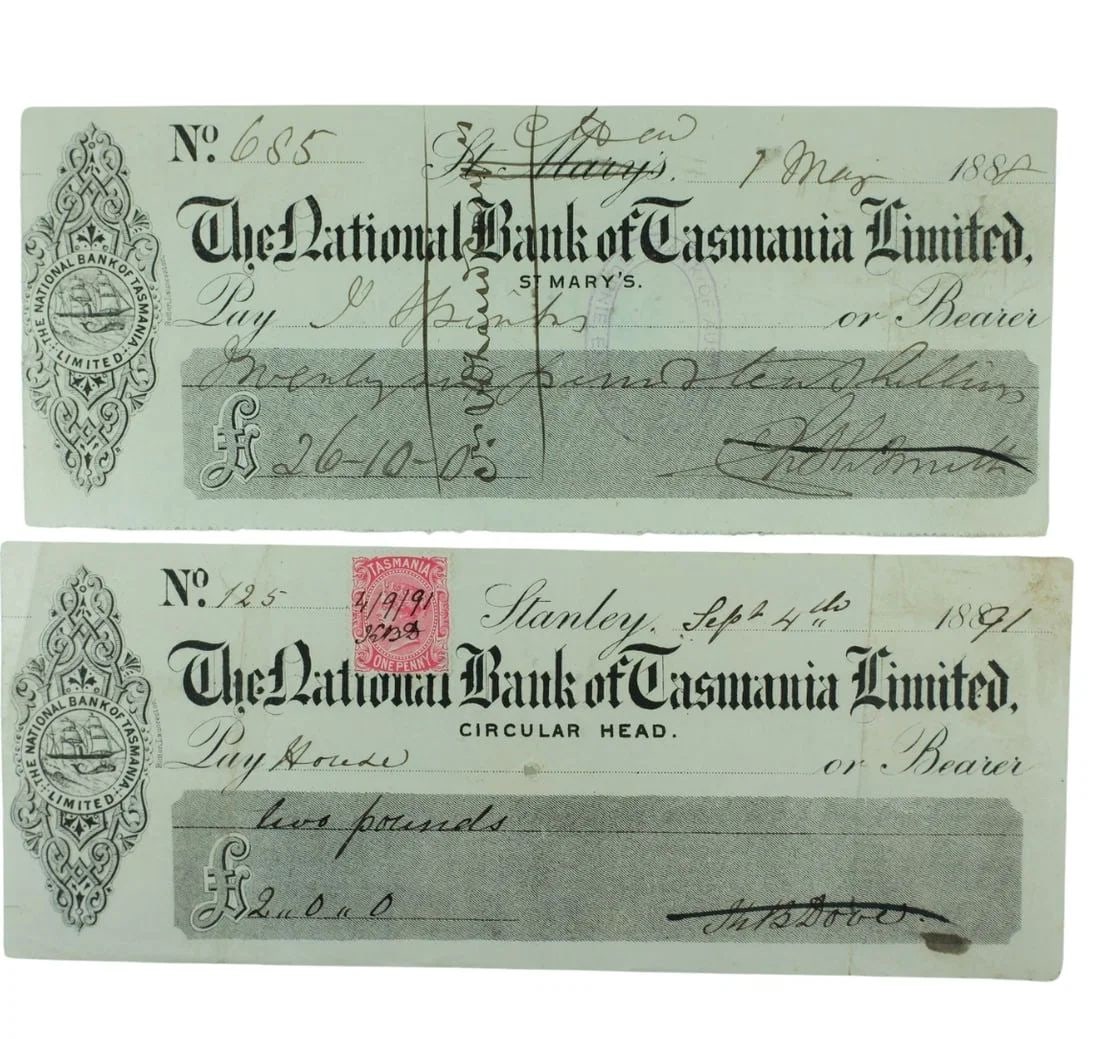 No. 685
St. Mary's. 1 May 1888
The National Bank of Tasmania Limited,
ST MARY'S.
Pay J Spinks or Bearer
Twenty six pounds ten Shillings
£ 26-10-0
THE NATIONAL BANK OF TASMANIA LIMITED
No. 125
TASMANIA
4/9/91
ONE PENNY
Stanley, Sept 4th 1891
The National Bank of Tasmania Limited,
CIRCULAR HEAD.
Pay House or Bearer
two pounds
£ 2"0"0
THE NATIONAL BANK OF TASMANIA LIMITED